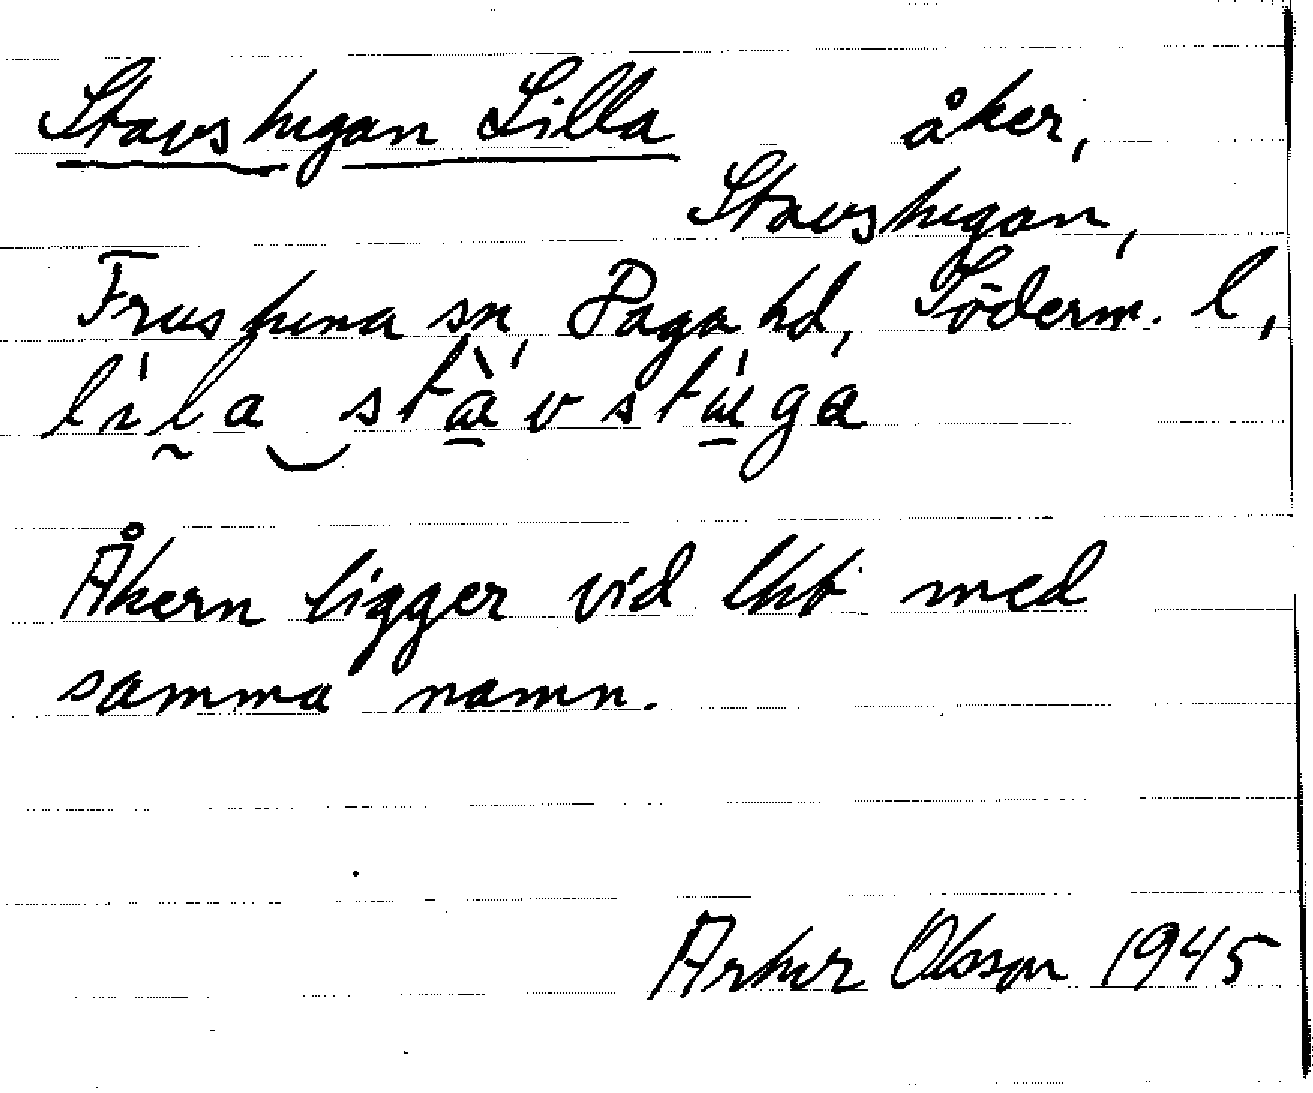 Stavstugan Lilla åker,
Stavstugan,
Frustuna sn, Daga hd, Söderm. l,
lila stavstuga
Åkern ligger vid lht med
samma namn.
Artur Olsson 1945